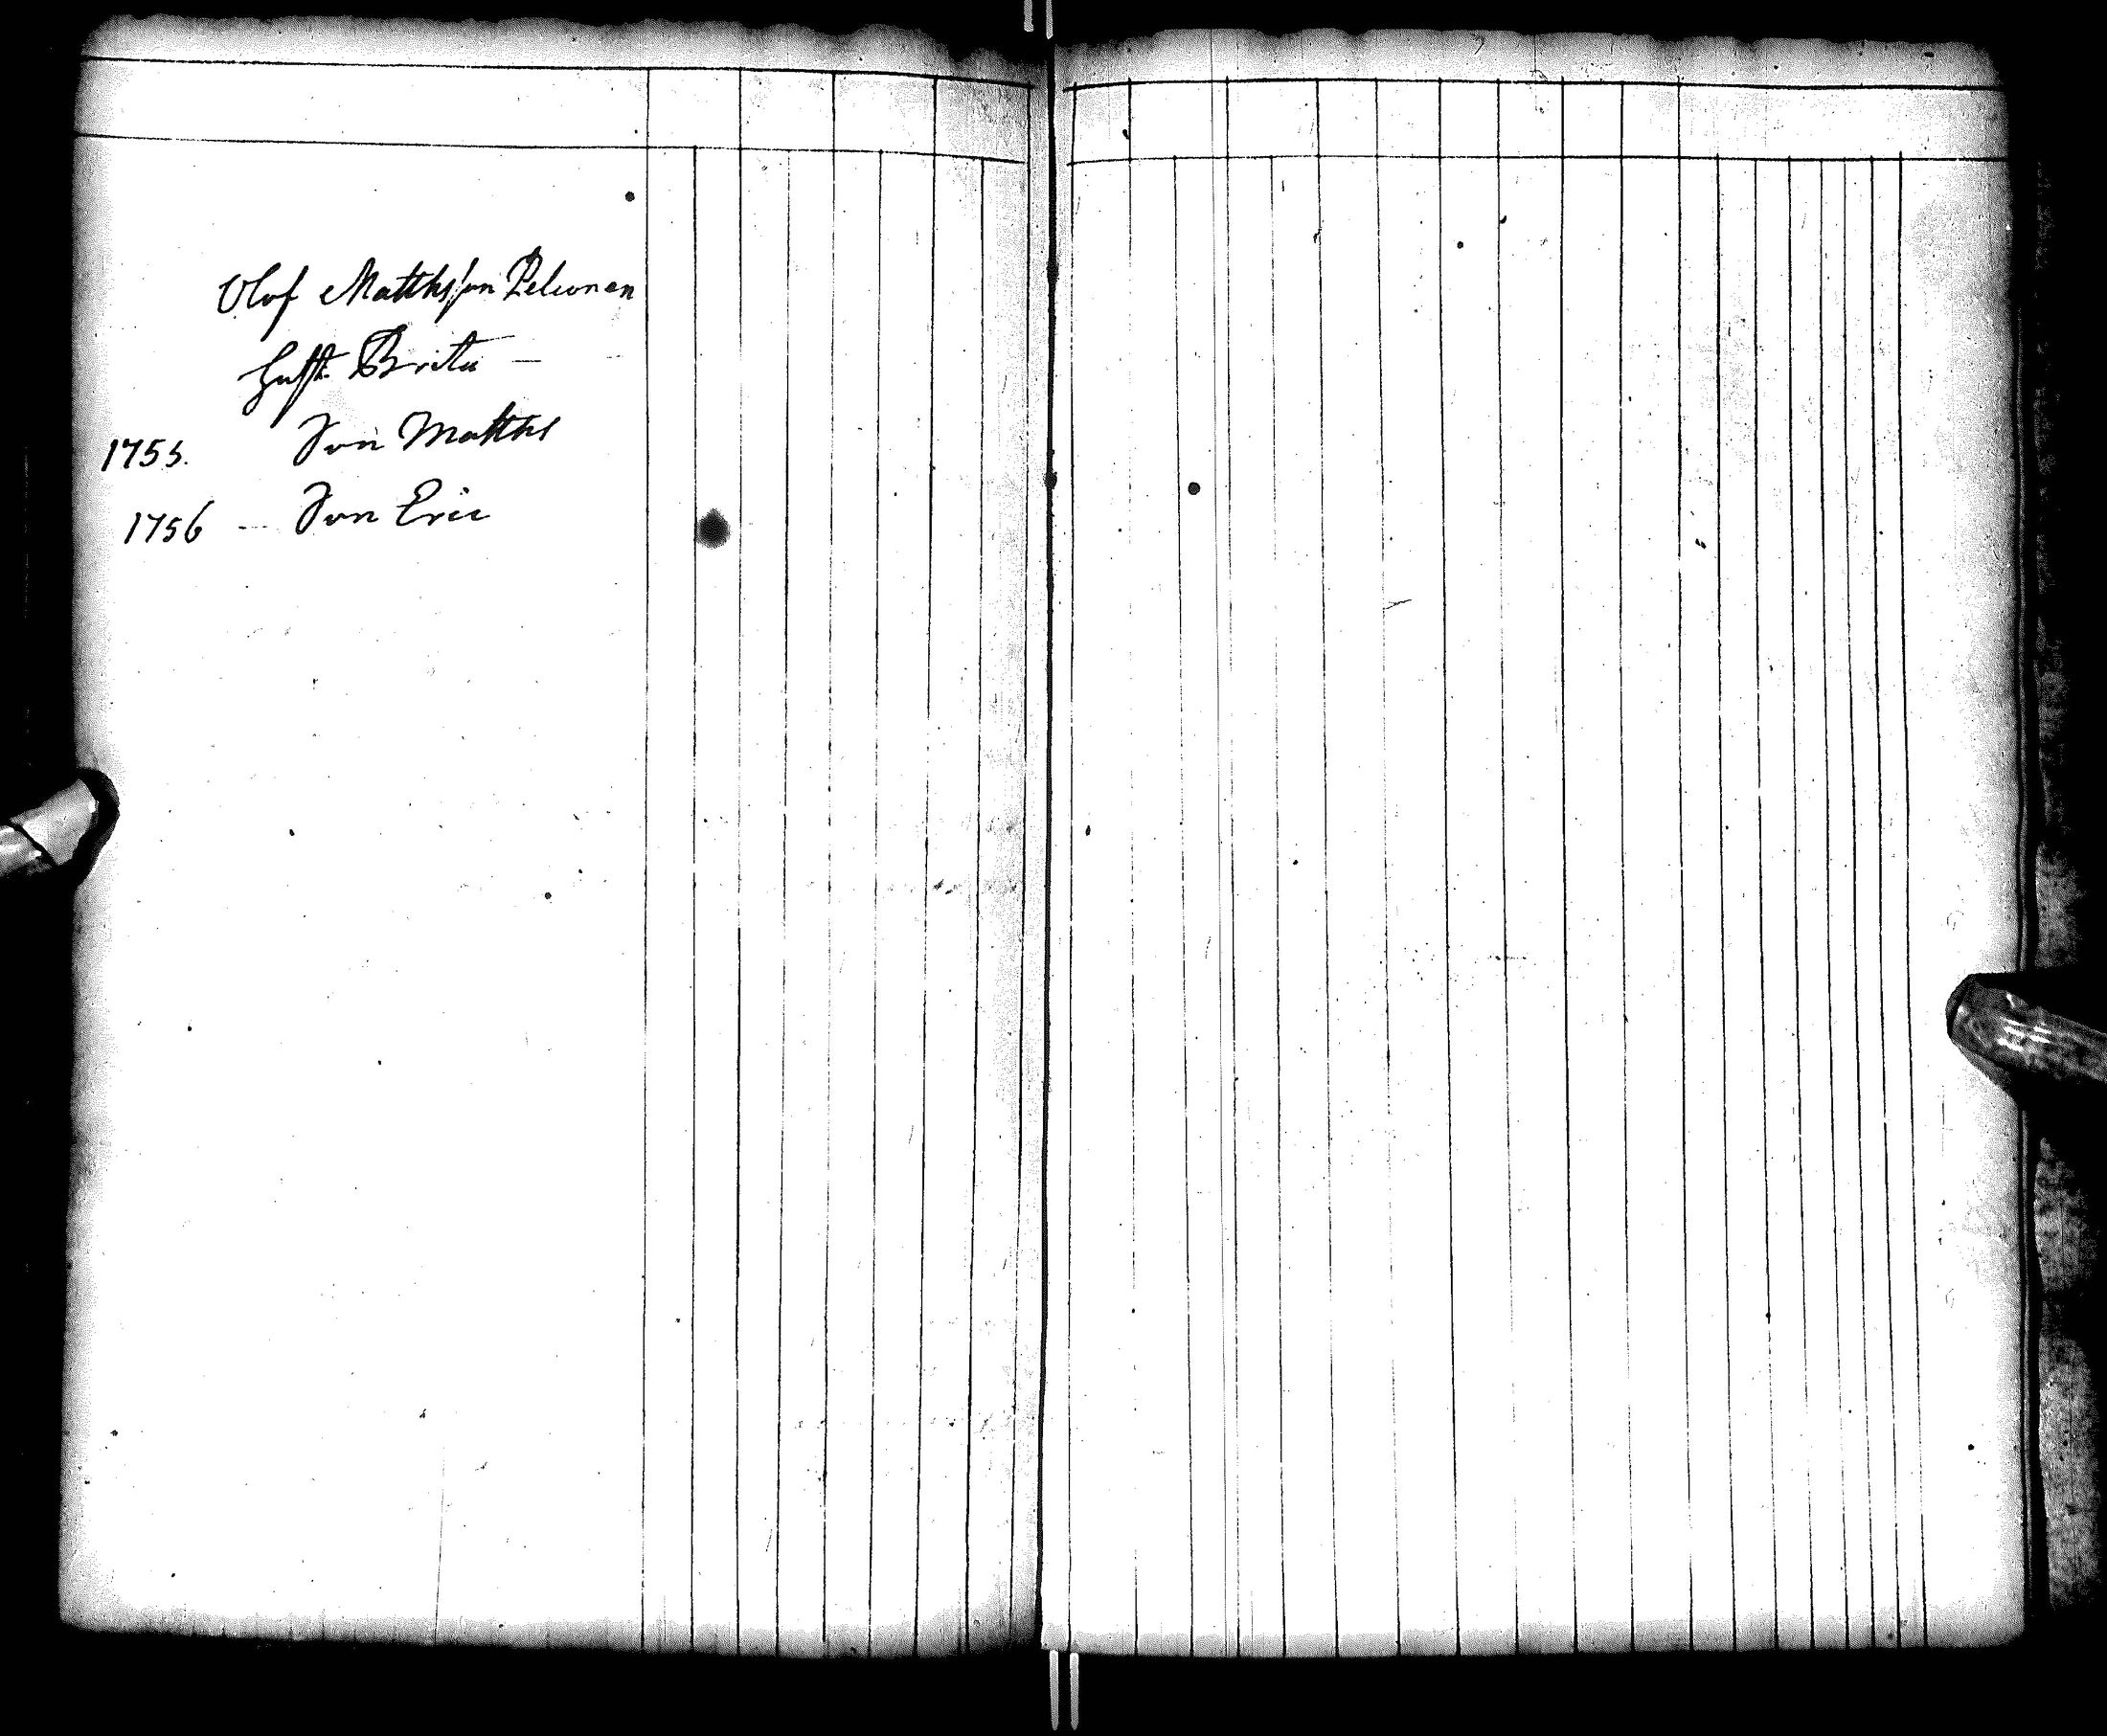 Olof Matthsson Pelconen
Hust. Brita —
1755. Son Matths
1756 — Son Eric